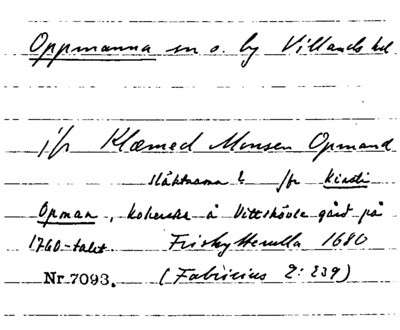 Oppmanna sn o. by Villands hd
jfr Klæmed Monsen Opmand
släktnamn? jfr Kirsti
Opman, kokerska å Vittskövle gård på
1760-talet. Friskytterulla 1680
Nr 7093. (Fabricius 2:239)